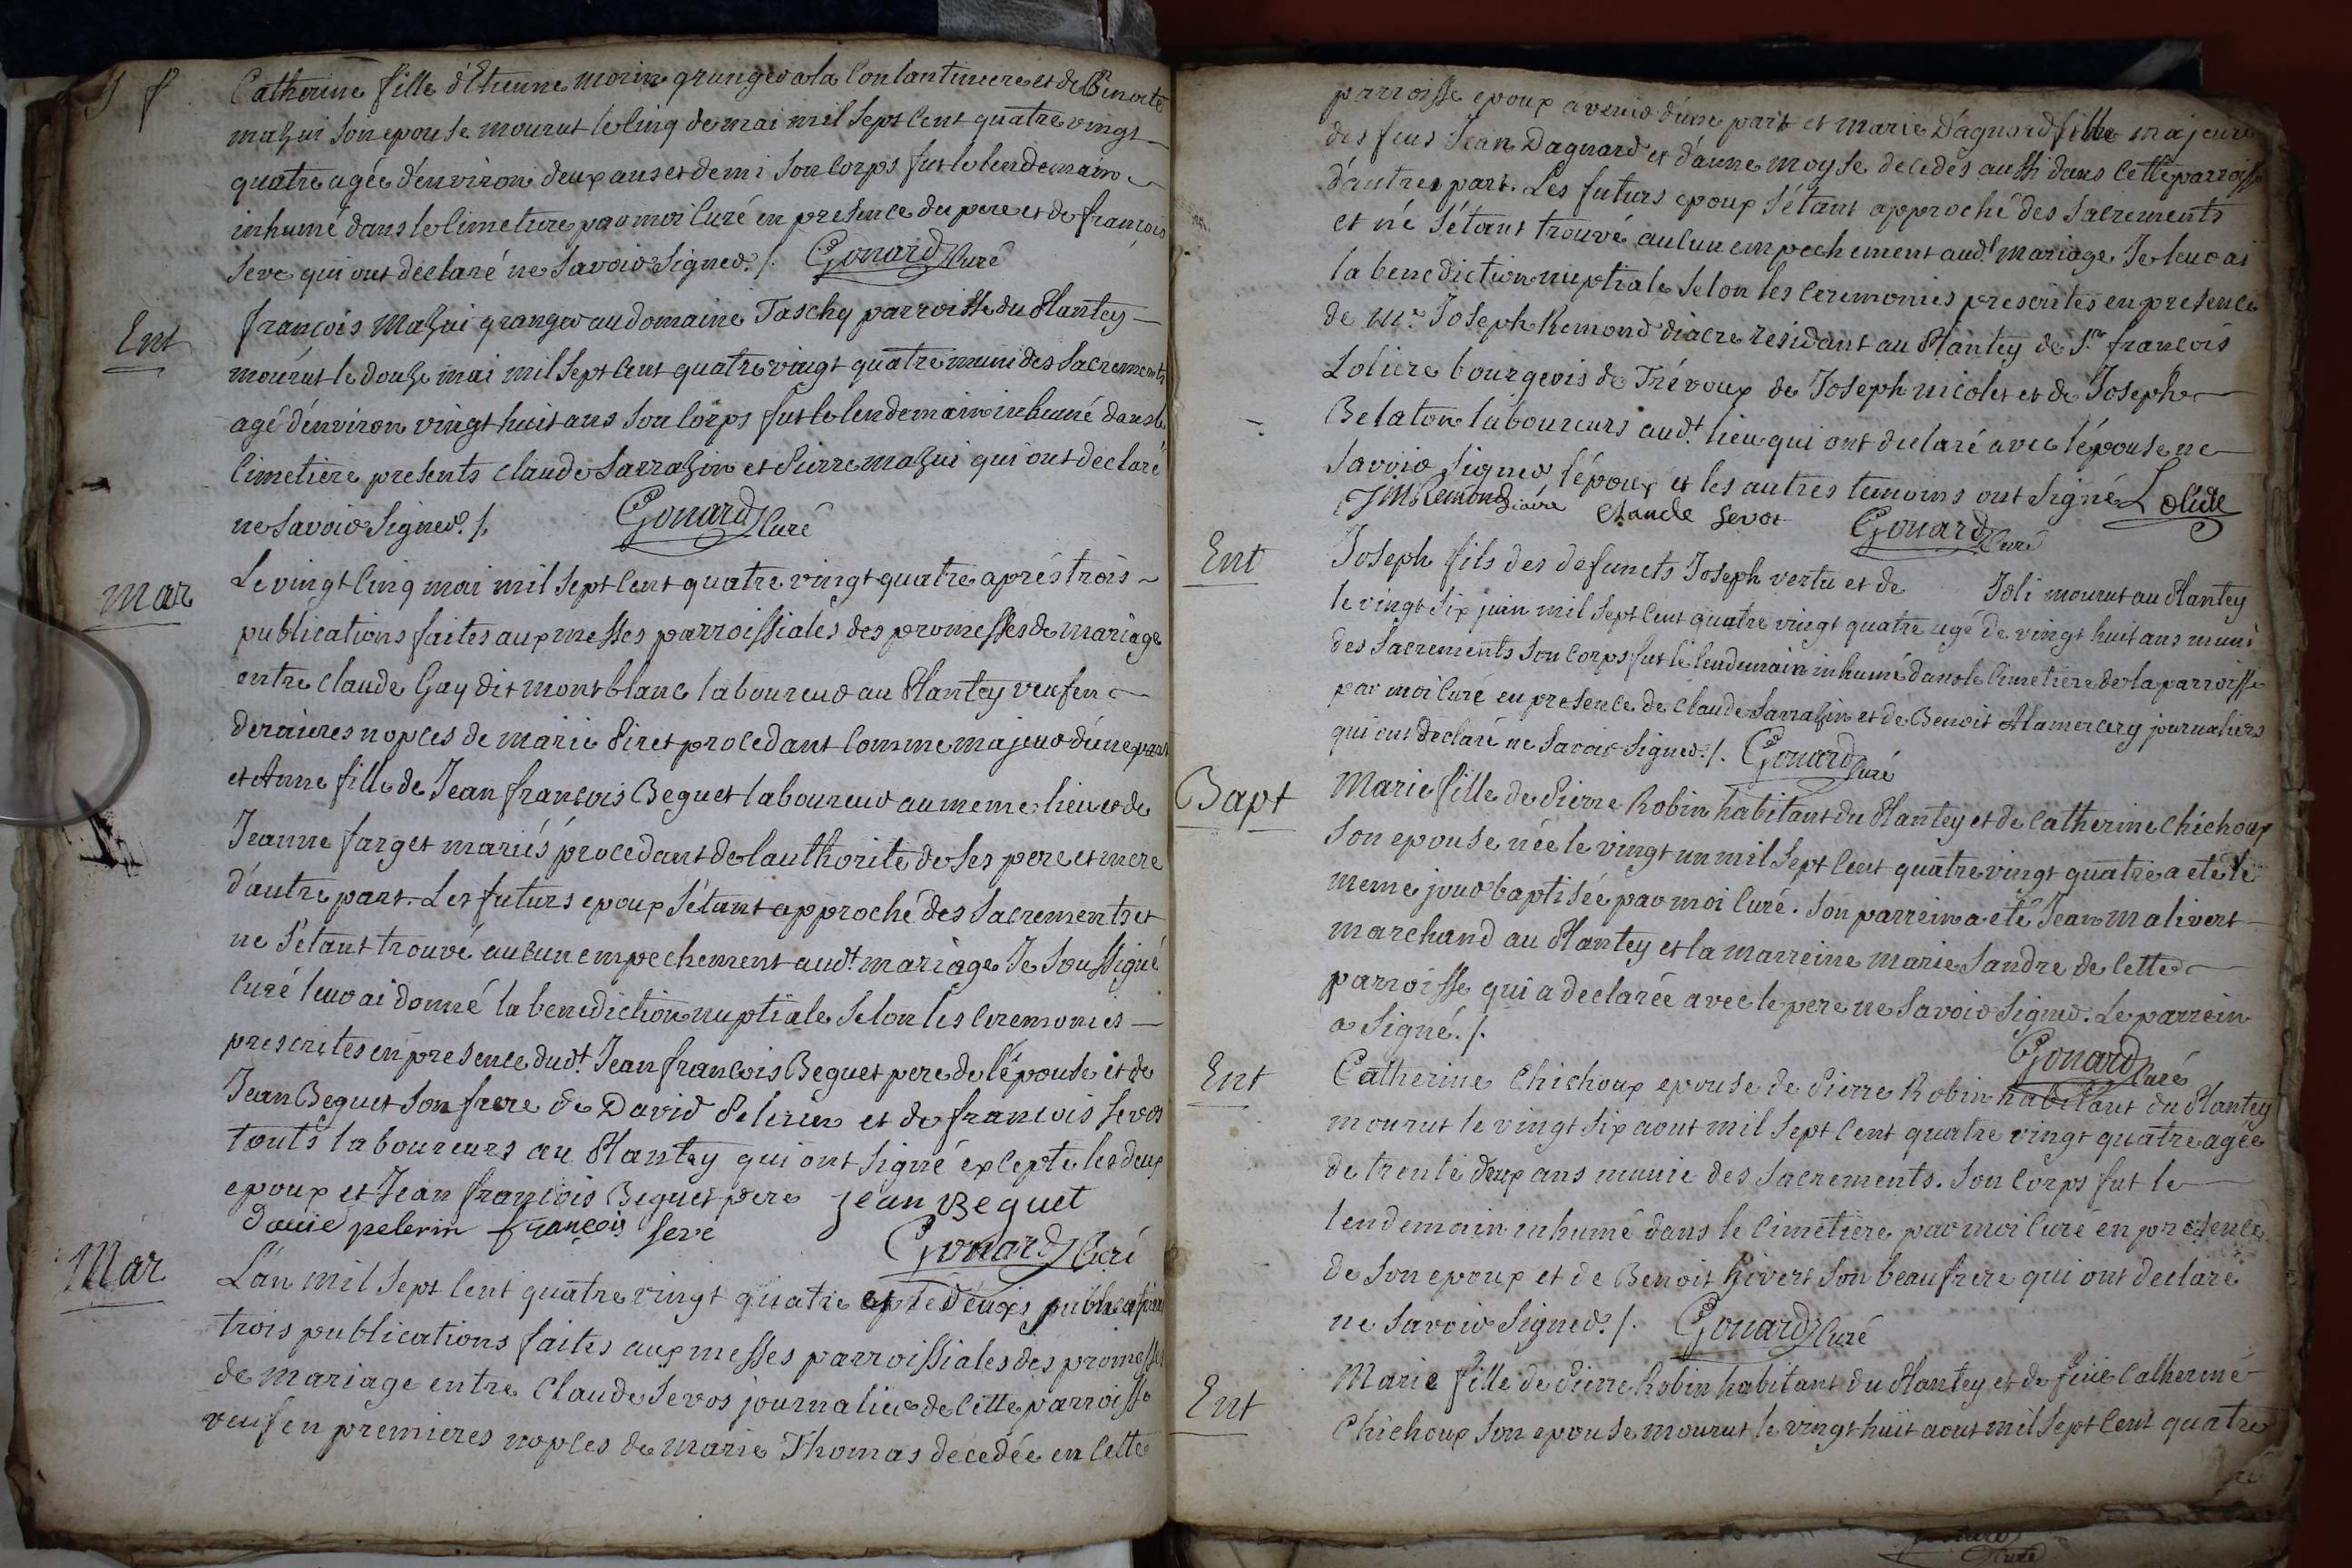 Catherine fille d'Etienne morin granger a la Contantiniere et de Benoite
mazui son epouse mourut le cinq de mai mil sept cent quatre vingt
quatre agée d'environ deux ans et demi son corps fut le lendemain
inhumé dans le cimetiere par moi curé en presence du pere et de françois
seve qui ont declaré ne savoir signer ./. Gonard curé
Ent
françois Mazui granger au domaine Taschy parroisse du Plantey
mourut le douze mai mil sept cent quatre vingt quatre muni des sacrements
agé d'environ vingt huit ans son corps fut le lendemain inhumé dans le
cimetiere presents claude sarrazin et Pierre mazui qui ont declaré
ne savoir signer ./. Gonard curé
Mar
Le vingt cinq mai mil sept cent quatre vingt quatre aprés trois
publications faites aux messes parroissiales des promesses de mariage
entre claude Gay dit montblanc laboureur au Plantey veuf en
dernieres nopces de marie Piret procedant comme majeur d'une part
et Anne fille de Jean françois Beguet laboureur au meme lieu et de
Jeanne farget mariés procedant de l'authorité de ses pere et mere
d'autre part. Les futurs epoux s'étant approché des sacrements et
ne s'étant trouvé aucun empechement audt. mariage Je soussigné
curé leur ai donné la benediction nuptiale selon les ceremonies
prescrites en presence dudt. Jean françois Beguet pere de l'épouse et de
Jean Beguet son frere de David Pelerin et de françois sevos
touts laboureurs au Plantey qui ont signé excepté les deux
epoux et Jean françois Beguet pere Jean Beguet
Davie pelerin françois seve
Gonard curé
Mar
L'an mil sept cent quatre vingt quatre et le
trois publications faites aux messes parroissiales des promesses
de mariage entre Claude Sevos journalier de cette parroisse
veuf en premieres nopces de marie Thomas decedée en cette
parroisse epoux a venir d'une part et marie Dagnard fille majeure
des feus Jean Dagnard et d'anne moyse decedés aussi dans cette parroisse
d'autre part. Les futurs epoux s'étant approché des sacrements
et né s'étant trouvé aucun empechement audt. mariage Je leur ai
la benediction nuptiale selon les ceremonies prescrites en presence
de Mr. Joseph Remond diacre residant au Plantey de Sr. françois
Loliere bourgeois de Trévoux de Joseph nicolet et de Joseph
Belaton laboureurs audt. lieu qui ont declaré avec l'épouse ne
savoir signer l'époux et les autres temoins ont signé
Remond diacre Claude Sevos Gonard curé
Ent
Joseph fils des defuncts Joseph vertu et de Joli mourut au Plantey
le vingt six juin mil sept cent quatre vingt quatre agé de vingt huit ans muni
des sacrements son corps fut le lendemain inhumé dans le cimetiere de la parroisse
par moi curé en presence de claude sarrazin et de Benoit Alamercery journaliers
qui ont declaré ne savoir signer ./. Gonard curé
Bapt
Marie fille de Pierre Robin habitant du Plantey et de catherine chichoux
son epouse née le vingt un mil sept cent quatre vingt quatre a eté le
meme jour baptisée par moi curé. son parrein a eté Jean malivert
marchand au Plantey et la marreine marie sandre de cette
parroisse qui a declarée avec le pere ne savoir signer. Le parrein
a signé ./.
Gonard curé
Ent
Catherine Chichoux epouse de Pierre Robin habitant du Plantey
mourut le vingt six aout mil sept cent quatre vingt quatre agée
de trente deux ans munie des sacrements. son corps fut le
lendemain inhumé dans le cimetiere par moi curé en presence
de son epoux et de Benoit Givert son beaufrere qui ont declaré
ne savoir signer ./. Gonard curé
Ent
Marie fille de Pierre Robin habitant du Plantey et de feue Catherine
Chichoux son epouse mourut le vingt huit aout mil sept cent quatre